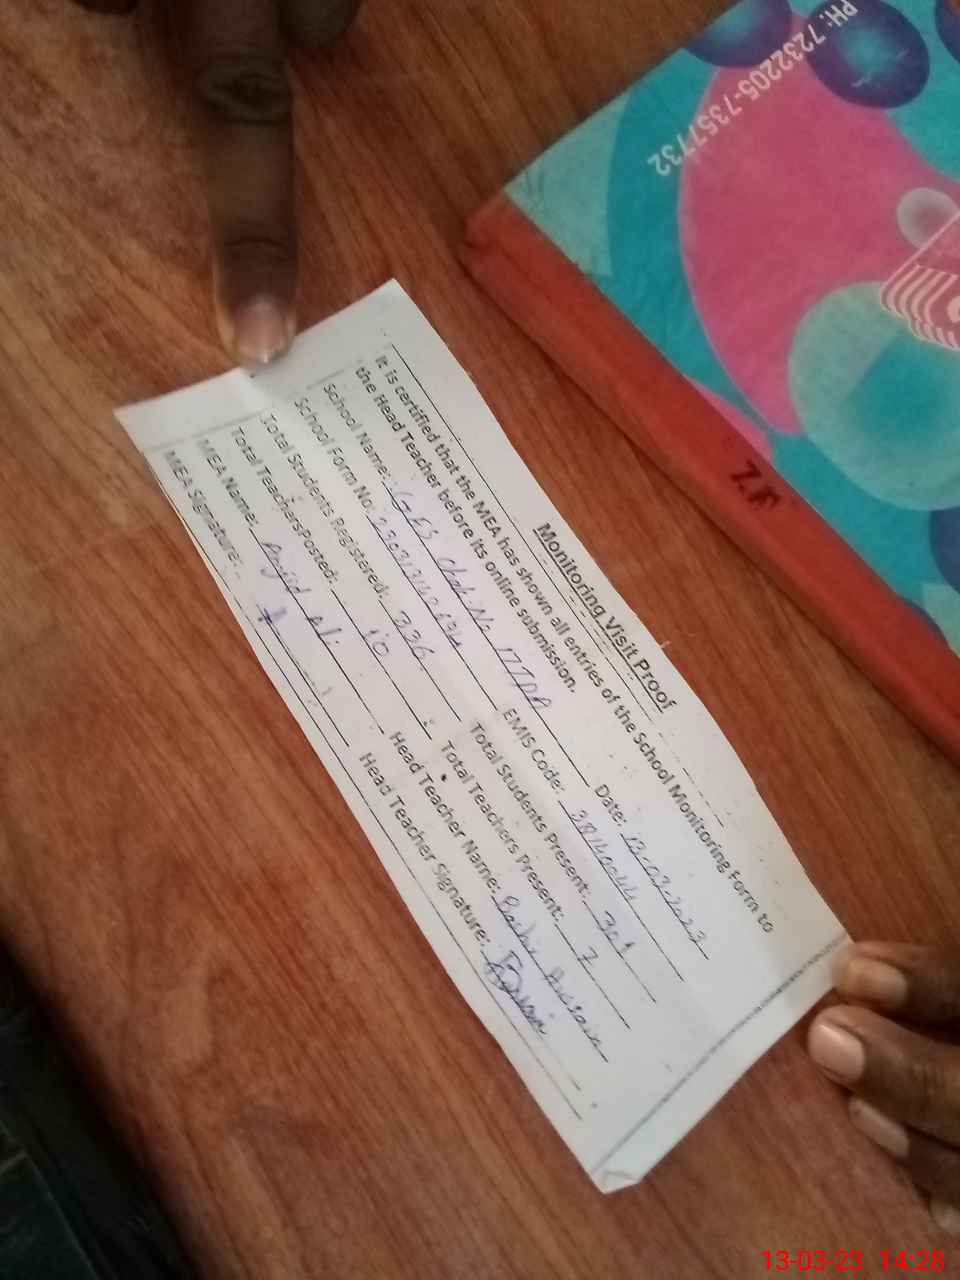 Monitoring Visit Proof
It is certified that the MEA has shown all entries of the School Monitoring Form to
the Head Teacher before its online submission.
Date: 13-03-2023
School Name: GES Chak No 177DA EMIS Code: 38140044
School Form No: Total Students Present: 301
Total Students Registered: 336 Total Teachers Present: 7
Total TeachersPosted: 10 Head Teacher Name: Bashir Hussain
MEA Name: Amjid Ali Head Teacher Signature:
MEA Signature:
PH: 7232205-7357732
13-03-23 14:28